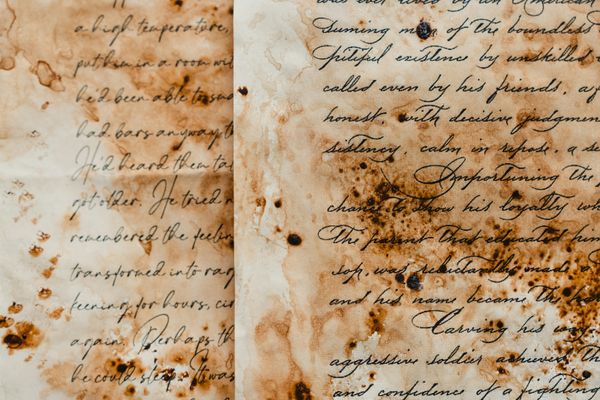 a high temperature,
put him in a room wi
he'd been able to swa
had bars anyway t
He'd heard them ta
got older. He tried n
remembered the feelin
transformed into rag
keening, for hours, cir
again. Perhaps th
he could sleep. It was
was ever lived by an American
suming man of the boundless
pitiful existence by unskilled
called even by his friends, a
honest, with decisive judgmen
sistency, calm in repose, a se
Importuning the
chance to show his loyalty wh
The parent that educated him
son, was reluctantly made a
and his name became the
Carving his way
aggressive soldier achieved th
and confidence of a fighting